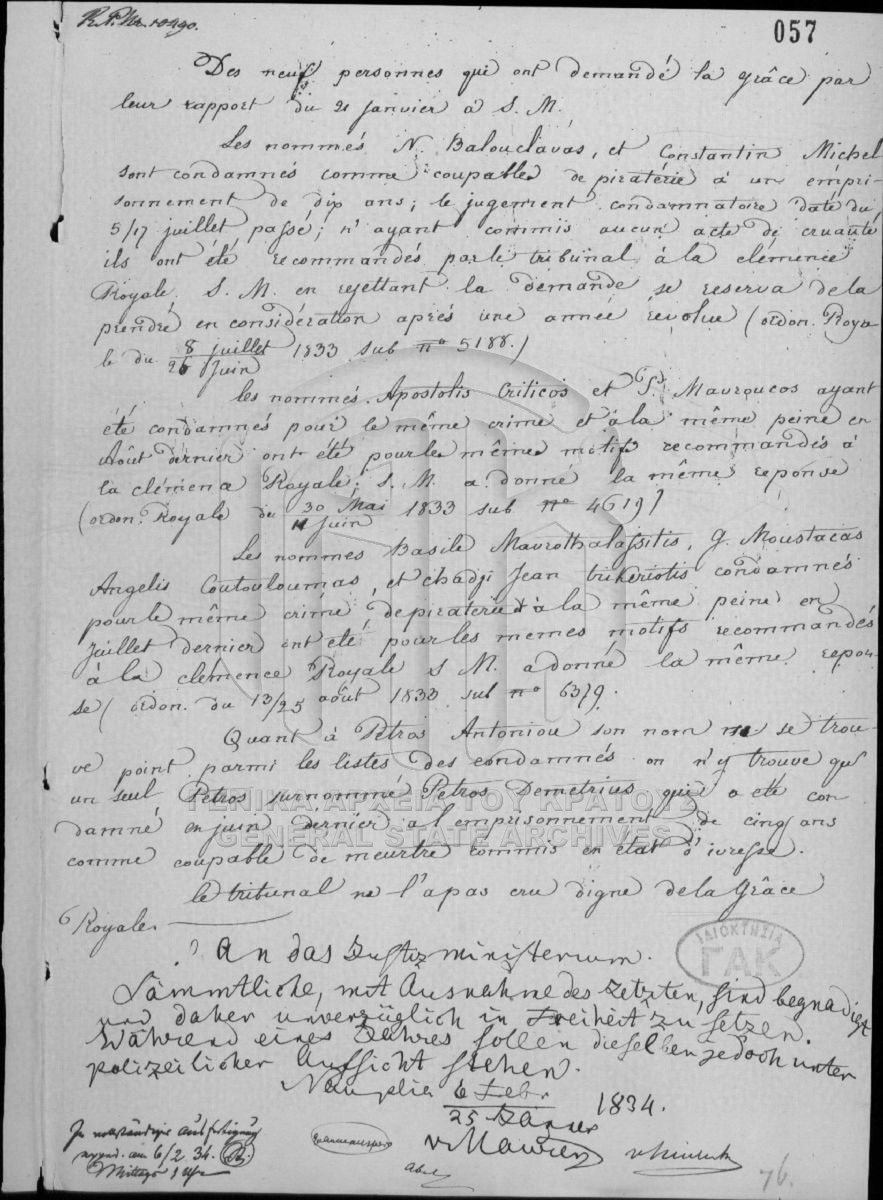 R. P. No. 10490.
057
Des neuf personnes qui ont demandé la grâce par
leur rapport du 21 janvier à S. M.
Les nommés N. Balouclavas, et Constantin Michel
sont condamnés comme coupables de piratérie à un empri-
sonnement de dix ans; le jugement condamnatoire daté du
5/17 juillet passé; n'ayant commis aucun acte de cruauté
ils ont été recommandés par le tribunal à la clémence
Royale, S. M. en rejettant la demande se reserva de la
prendre en considération après une année révolue (ordon. Roya-
le du 8 juillet / 26 Juin 1833 sub no 5188.)
les nommés Apostolis Criticos et P. Mavroucos ayant
été condamnés pour le même crime et à la même peine en
Août dernier ont été pour les mêmes motifs recommandés à
la clémence Royale; S. M. a donné la même reponse
(ordon. Royale du 30 Mai / 11 Juin 1833 sub no 4619)
Les nommés Basile Mavrothalassitis, G. Moustacas
Angelis Coutouloumas, et chadji Jean trikeriotis condamnés
pour le même crime de piraterie et à la même peine en
Juillet dernier ont été pour les memes motifs recommandés
à la clémence Royale S M. a donné la même repon-
se (ordon. du 13/25 août 1833 sub no 6379.
Quant à Petros Antoniou son nom ne se trou-
ve point parmi les listes des condamnés on n'y trouve qu'
un seul Petros surnommé Petros Demetrius qui a été con
damné en juin dernier a l'emprisonnement de cinq ans
comme coupable de meurtre commis en état d'ivresse.
le tribunal ne l'a pas cru digne de la Grâce
Royale.
An das Justizministerium.
Sämmtliche, mit Ausnahme des Letzten, sind begnadigt
und daher unverzüglich in Freiheit zu setzen.
Während eines Jahres sollen dieselben jedoch unter
polizeilicher Aufsicht stehen.
Nauplia 6 Febr / 25 Jänner 1834.
In vollständige Ausfertigung
am 6/2 34.
Mittags 1 Uhr
v Maurer
76.
ΓΕΝΙΚΑ ΑΡΧΕΙΑ ΤΟΥ ΚΡΑΤΟΥΣ
GENERAL STATE ARCHIVES
ΙΔΙΟΚΤΗΣΙΑ
ΓΑΚ